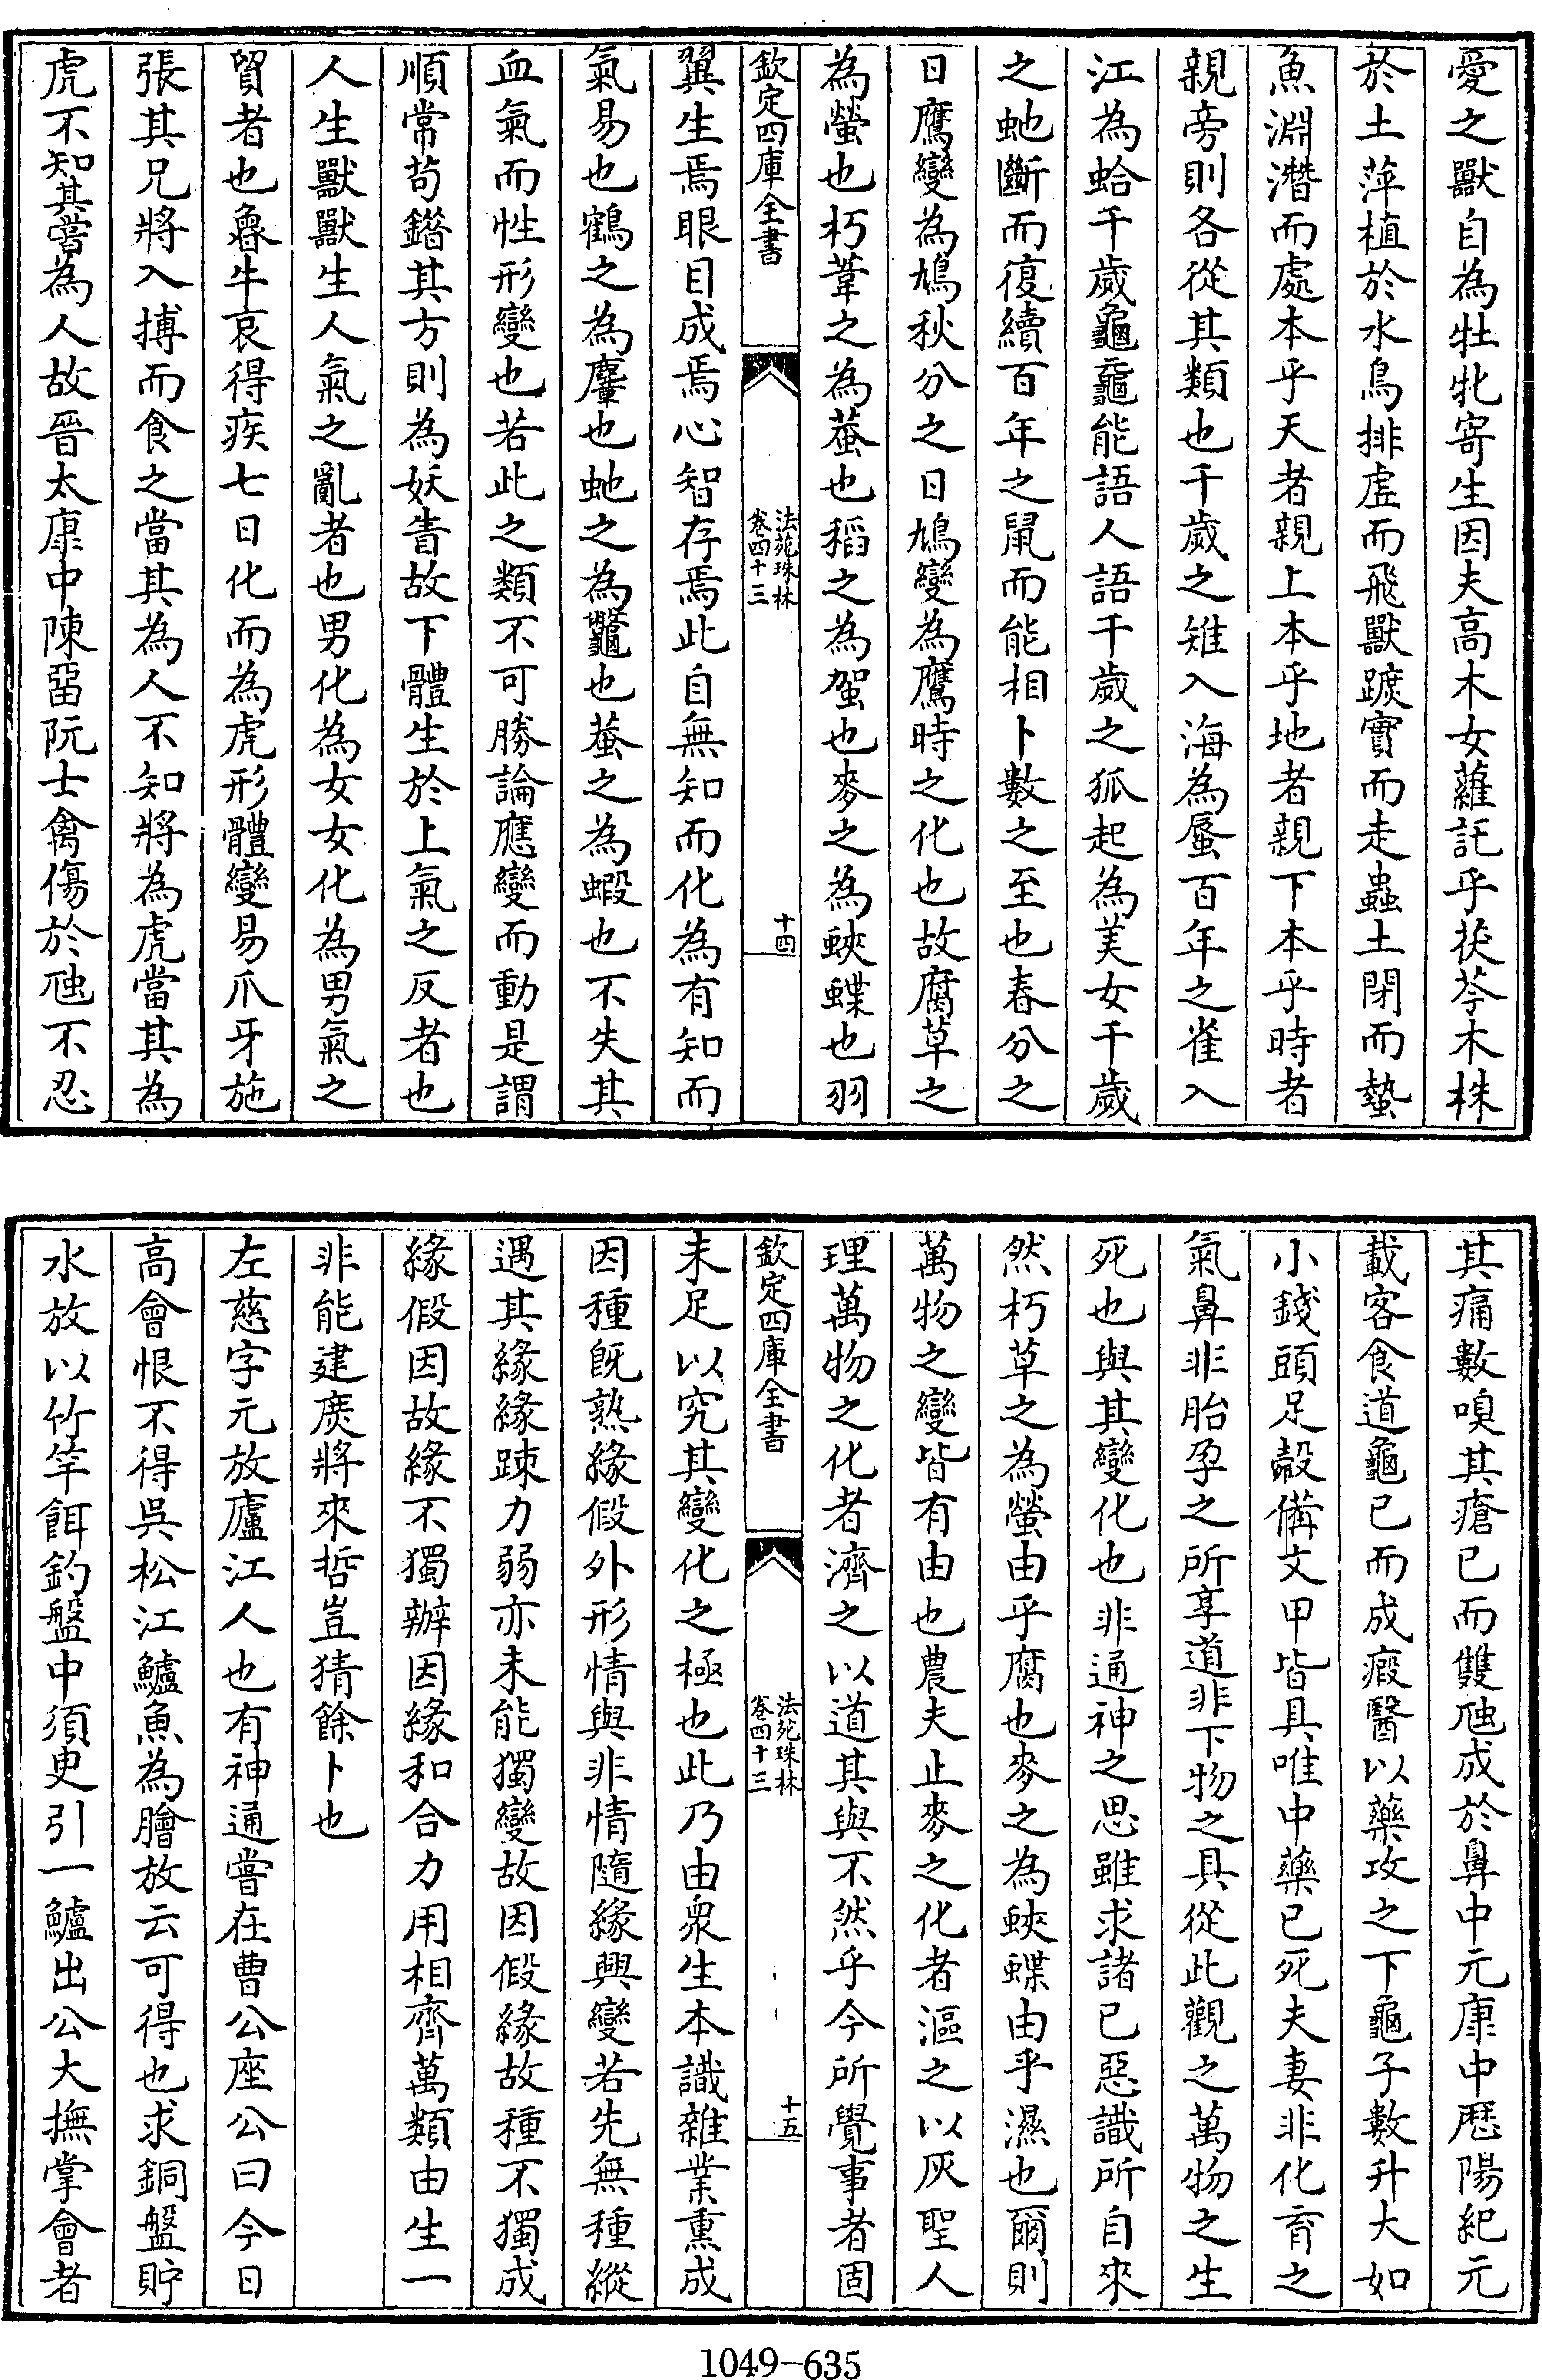 愛之獸自為牡牝寄生因夫高木女蘿託乎茯苓木株
於土萍植於水鳥排虛而飛獸蹠實而走蟲土閉而蟄
魚淵潛而處本乎天者親上本乎地者親下本乎時者
親旁則各從其類也千歲之雉入海為蜃百年之雀入
江為蛤千歲龜黿能語人語千歲之狐起為美女千歲
之虵斷而復續百年之鼠而能相卜數之至也春分之
日鷹變為鳩秋分之日鳩變為鷹時之化也故腐草之
為螢也朽葦之為蛬也稻之為𧊵也麥之為蛺蝶也羽
欽定四庫全書
法苑珠林
卷四十三
十四
翼生焉眼目成焉心智存焉此自無知而化為有知而
氣易也鶴之為麞也虵之為鼈也蛬之為蝦也不失其
血氣而性形變也若此之類不可勝論應變而動是謂
順常苟錯其方則為妖眚故下體生於上氣之反者也
人生獸獸生人氣之亂者也男化為女女化為男氣之
貿者也魯牛哀得疾七日化而為虎形體變易爪牙施
張其兄將入搏而食之當其為人不知將為虎當其為
虎不知其嘗為人故晉太康中陳留阮士禽傷於虺不忍
其痛數嗅其瘡已而雙虺成於鼻中元康中厯陽紀元
載客食道龜已而成瘕醫以藥攻之下龜子數升大如
小錢頭足㲉備文甲皆具唯中藥已死夫妻非化育之
氣鼻非胎孕之所享道非下物之具從此觀之萬物之生
死也與其變化也非通神之思雖求諸已惡識所自來
然朽草之為螢由乎腐也麥之為蛺蝶由乎濕也爾則
萬物之變皆有由也農夫止麥之化者漚之以灰聖人
理萬物之化者濟之以道其與不然乎今所覺事者固
欽定四庫全書
法苑珠林
卷四十三
十五
未足以究其變化之極也此乃由衆生本識雜業熏成
因種旣熟緣假外形情與非情隨緣興變若先無種縱
遇其緣緣踈力弱亦未能獨變故因假緣故種不獨成
緣假因故緣不獨辦因緣和合力用相齊萬類由生一
非能建庻將來哲豈猜餘卜也
左慈字元放廬江人也有神通嘗在曹公座公曰今日
高會恨不得吳松江鱸魚為膾放云可得也求銅盤貯
水放以竹竿餌釣盤中須臾引一鱸出公大撫掌會者
1049-635